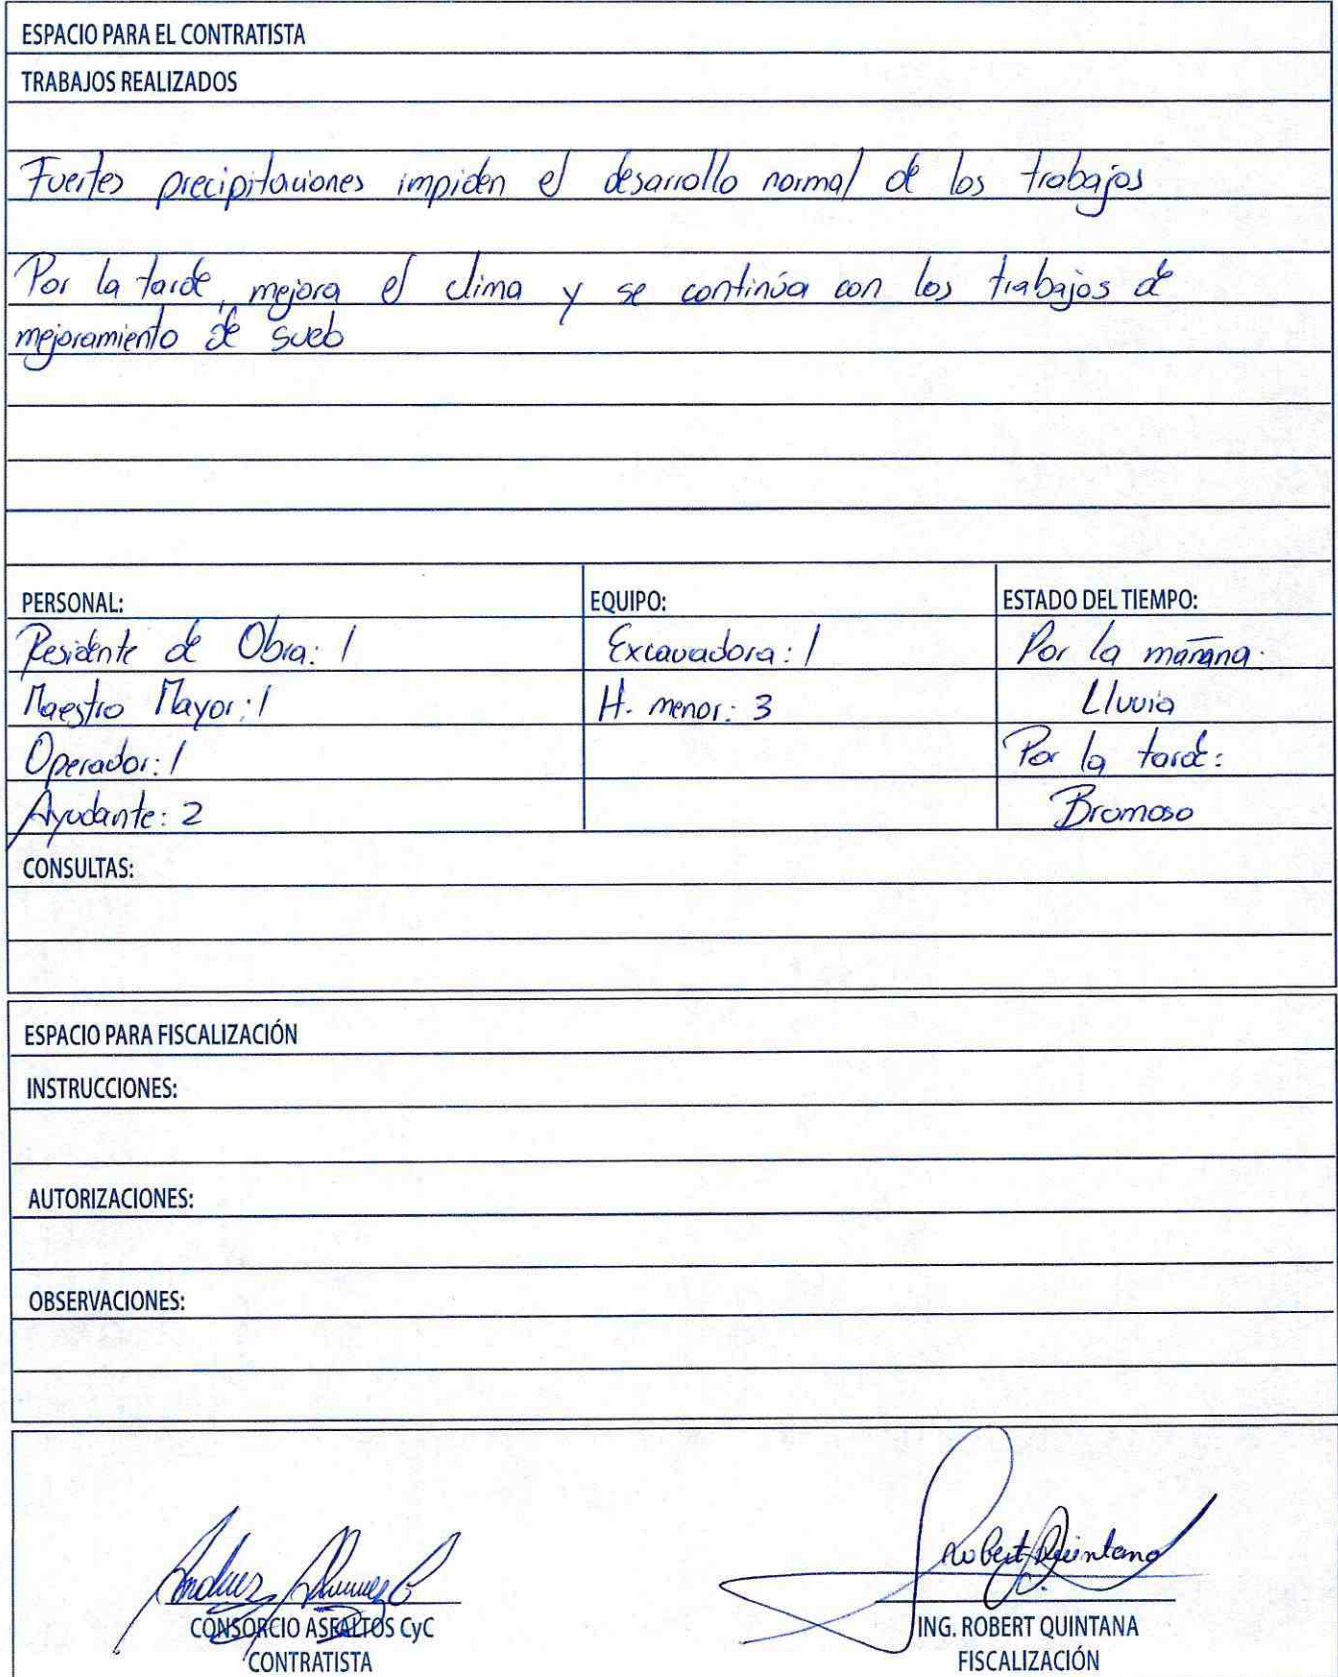 ESPACIO PARA EL CONTRATISTA
TRABAJOS REALIZADOS
Fuertes precipitaciones impiden el desarrollo normal de los trabajos
Por la tarde, mejora el clima y se continúa con los trabajos de
mejoramiento de suelo
PERSONAL: EQUIPO: ESTADO DEL TIEMPO:
Residente de Obra: 1 Excavadora: 1 Por la mañana:
Maestro Mayor: 1 H. menor: 3 Lluvia
Operador: 1 Por la tarde:
Ayudante: 2 Bromoso
CONSULTAS:
ESPACIO PARA FISCALIZACIÓN
INSTRUCCIONES:
AUTORIZACIONES:
OBSERVACIONES:
Robert Quintana
CONSORCIO ASFALTOS CyC ING. ROBERT QUINTANA
CONTRATISTA FISCALIZACIÓN